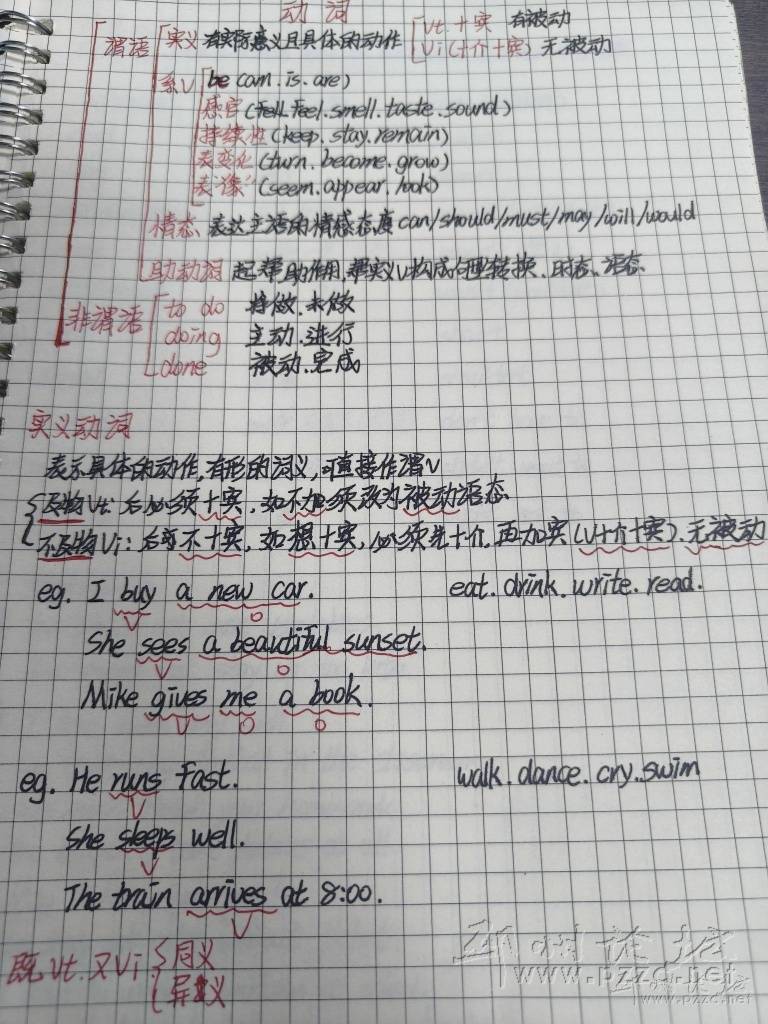 动词
谓语 实义 有实际意义且具体的动作 Vt.+宾 有被动
Vi(+介+宾) 无被动
系V be(am.is.are)
感官(feel.smell.taste.sound)
持续性(keep.stay.remain)
表变化(turn.become.grow)
表"像"(seem.appear.look)
情态 表达主语的情感态度 can/should/must/may/will/would
助动词 起帮助作用,帮实义V构成句型转换、时态、语态
非谓语 to do 将做.未做
doing 主动.进行
done 被动.完成
实义动词
表示具体的动作,有形的词义,可直接作谓V
及物Vt: 后必须+宾,如不加须改为被动语态
不及物Vi: 后可不+宾,如想+宾,必须先+介,再加宾(V+介+宾).无被动
eg. I buy a new car. eat.drink.write.read.
V O
She sees a beautiful sunset.
V O
Mike gives me a book.
V O O
eg. He runs fast. walk.dance.cry.swim
V
She sleeps well.
V
The train arrives at 8:00.
V
既Vt.又Vi 同义
异义
邳州论坛
www.pzzc.net
www.pzzc.net